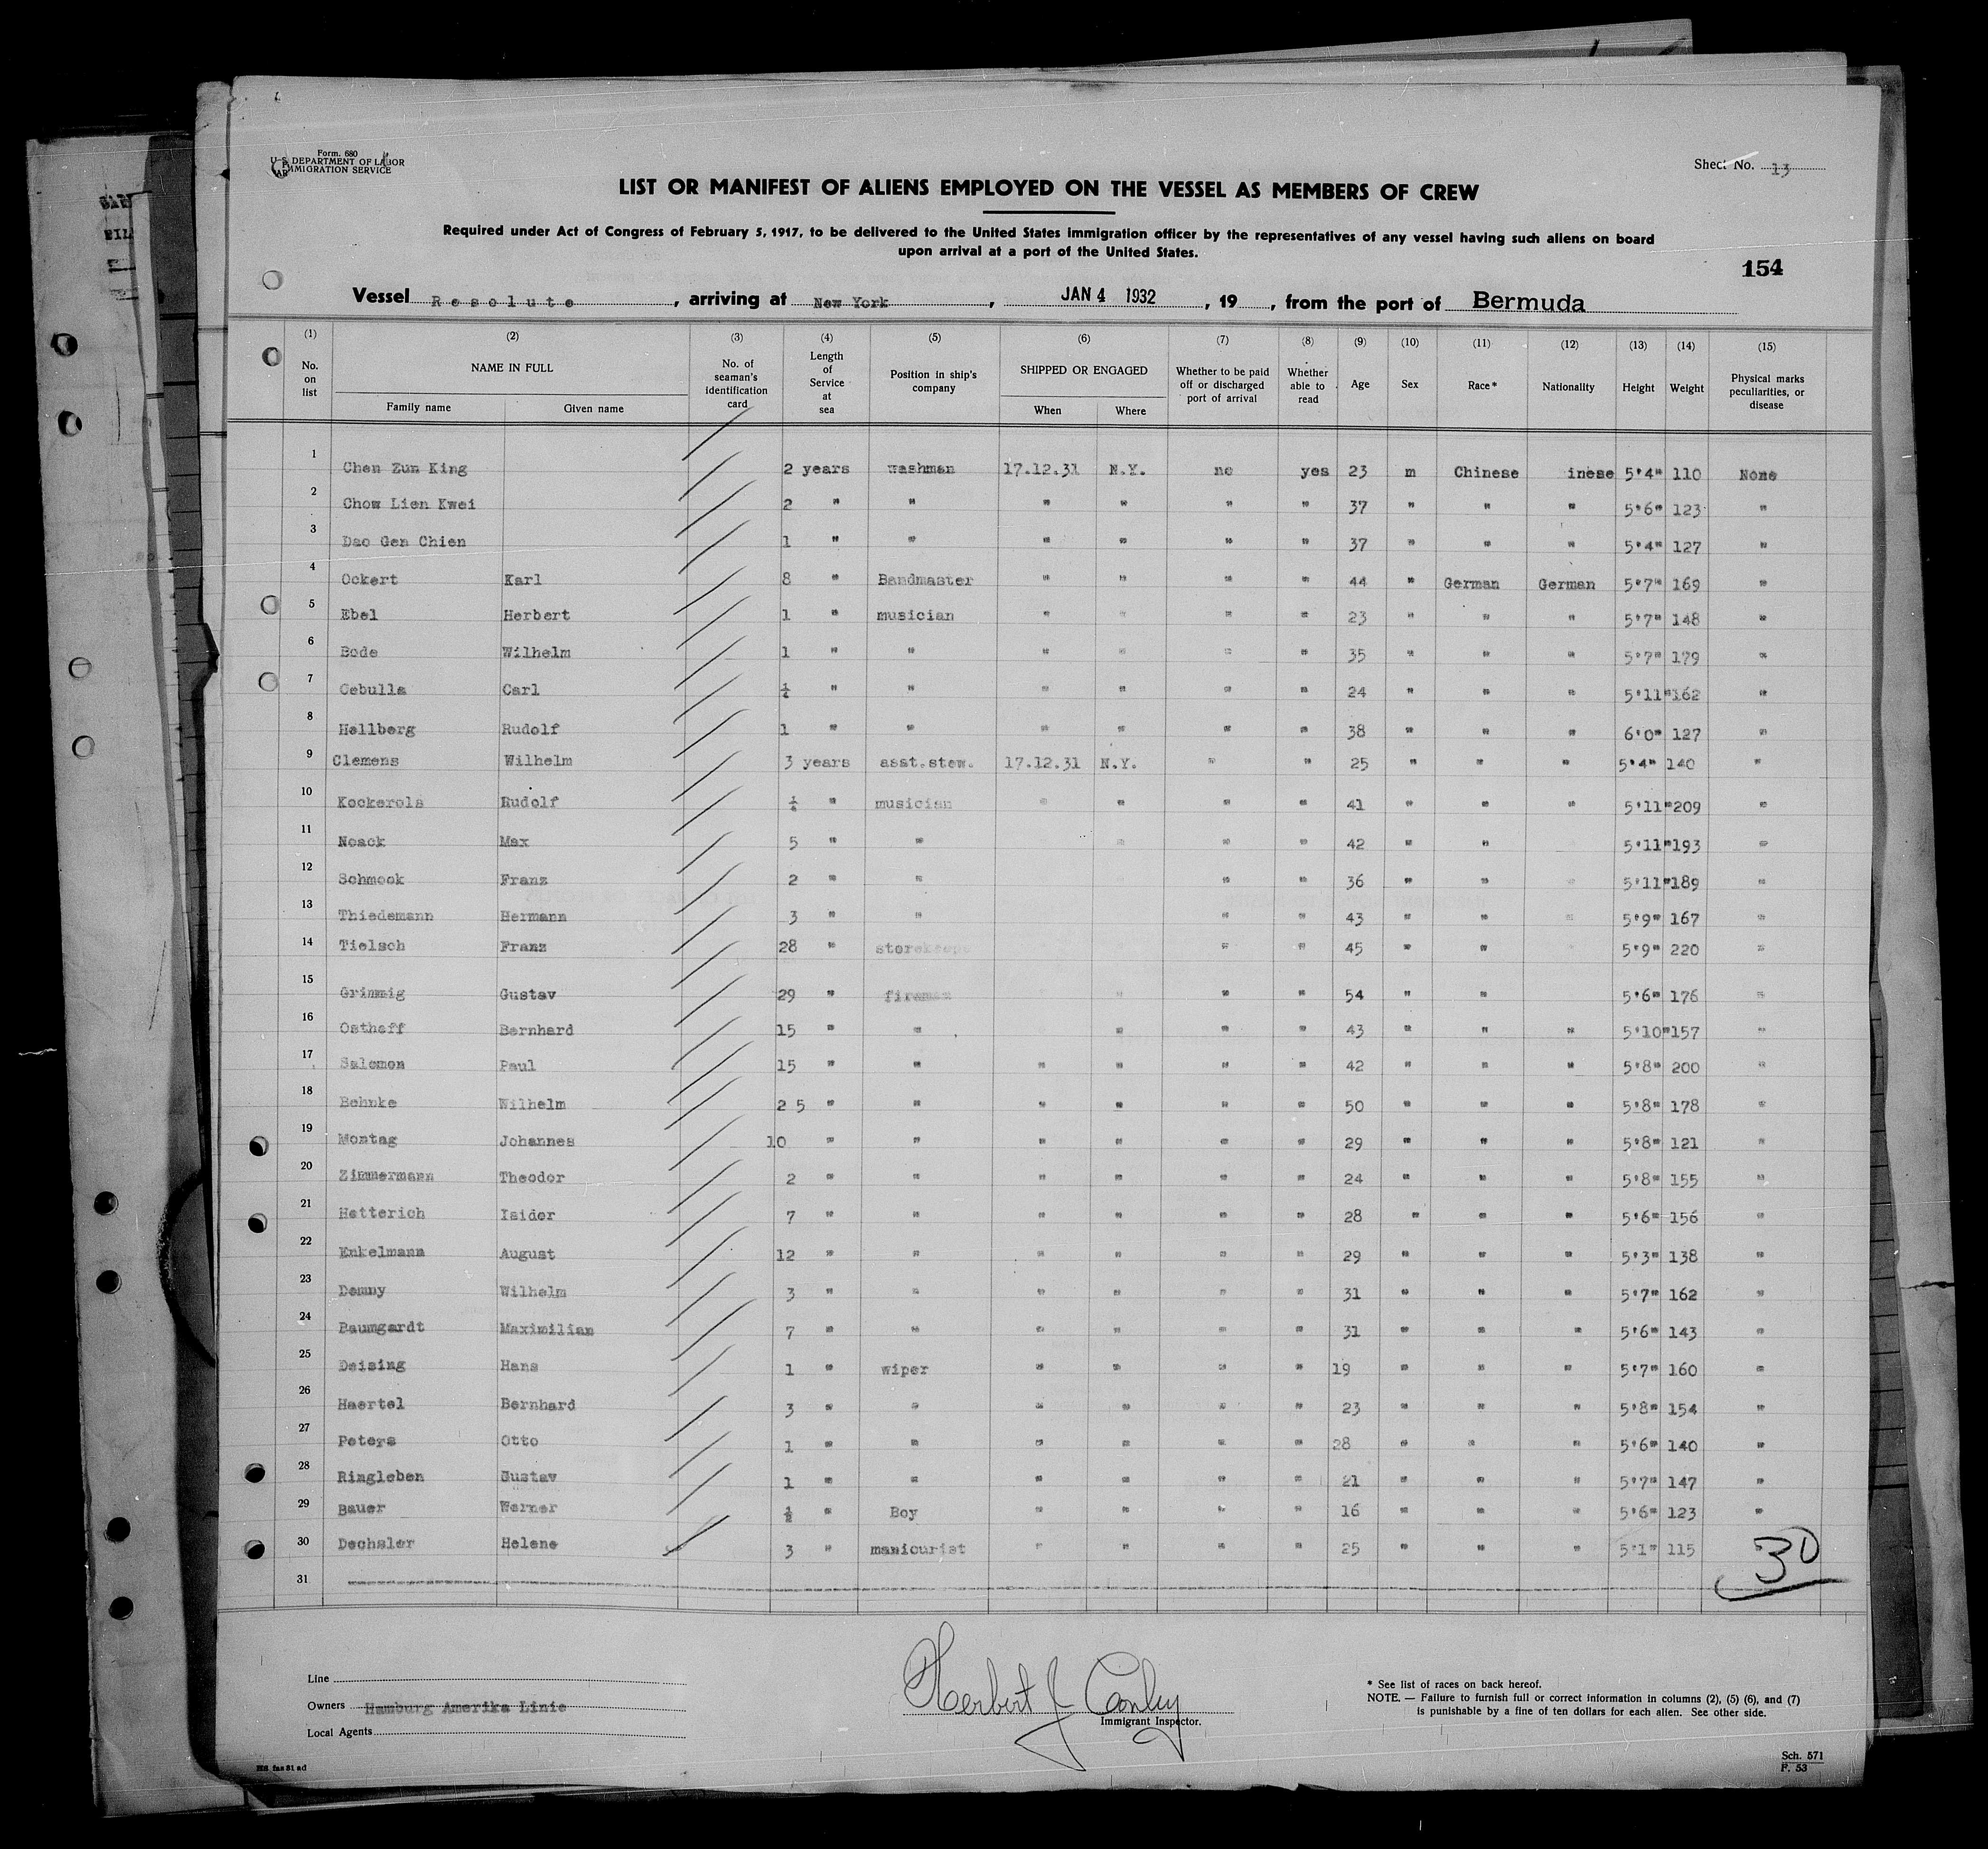 Form. 680
U. S. DEPARTMENT OF LABOR
IMMIGRATION SERVICE
Sheet No. 13
LIST OR MANIFEST OF ALIENS EMPLOYED ON THE VESSEL AS MEMBERS OF CREW
Required under Act of Congress of February 5, 1917, to be delivered to the United States immigration officer by the representatives of any vessel having such aliens on board
upon arrival at a port of the United States.
154
Vessel Resolute, arriving at New York, JAN 4 1932, 19, from the port of Bermuda
(1) No. on list
(2) NAME IN FULL Family name Given name
(3) No. of seaman's identification card
(4) Length of Service at sea
(5) Position in ship's company
(6) SHIPPED OR ENGAGED When Where
(7) Whether to be paid off or discharged port of arrival
(8) Whether able to read
(9) Age
(10) Sex
(11) Race*
(12) Nationality
(13) Height
(14) Weight
(15) Physical marks peculiarities, or disease
1 Chen Zun King 2 years washman 17.12.31 N.Y. no yes 23 m Chinese inese 5'4" 110 None
2 Chow Lien Kwei 2 " " " " " " 37 " " " 5'6" 123 "
3 Dao Gen Chien 1 " " " " " " 37 " " " 5'4" 127 "
4 Ockert Karl 8 " Bandmaster " " " " 44 " German German 5'7" 169 "
5 Ebel Herbert 1 " musician " " " " 23 " " " 5'7" 148 "
6 Bode Wilhelm 1 " " " " " " 35 " " " 5'7" 179 "
7 Cebulla Carl ½ " " " " " " 24 " " " 5'11" 162 "
8 Hellberg Rudolf 1 " " " " " " 38 " " " 6'0" 127 "
9 Clemens Wilhelm 3 years asst.stew. 17.12.31 N.Y. " " 25 " " " 5'4" 140 "
10 Kockerols Rudolf ½ " musician " " " " 41 " " " 5'11" 209 "
11 Noack Max 5 " " " " " 42 " " 5'11" 193 "
12 Schmook Franz 2 " " " " 36 " " " 5'11" 189 "
13 Thiedemann Hermann 3 " " " " 43 " " " 5'9" 167 "
14 Tielsch Franz 28 " storekeep " " 45 " " 5'9" 220 "
15 Grimmig Gustav 29 " fireman " " " 54 " " 5'6" 176 "
16 Osthoff Bernhard 15 " " " " " 43 " " " 5'10" 157 "
17 Salomon Paul 15 " " " " " " 42 " " " 5'8" 200 "
18 Behnke Wilhelm 2 5 " " " " " " 50 " " " 5'8" 178 "
19 Montag Johannes 10 " " " " " " 29 " " " 5'8" 121 "
20 Zimmermann Theodor 2 " " " " " " 24 " " " 5'8" 155 "
21 Hetterich Isidor 7 " " " " " " 28 " " " 5'6" 156 "
22 Enkelmann August 12 " " " " " " 29 " " " 5'3" 138 "
23 Demny Wilhelm 3 " " " " " " 31 " " " 5'7" 162 "
24 Baumgardt Maximilian 7 " " " " " " 31 " " " 5'6" 143 "
25 Deising Hans 1 " wiper " " " " 19 " " " 5'7" 160 "
26 Haertel Bernhard 3 " " " " " " 23 " " " 5'8" 154 "
27 Peters Otto 1 " " " " " " 28 " " " 5'6" 140 "
28 Ringleben Gustav 1 " " " " " " 21 " " " 5'7" 147 "
29 Bauer Werner ½ " Boy " " " " 16 " " " 5'6" 123 "
30 Dechsler Helene 3 " manicurist " " " " 25 " " " 5'1" 115 "
31
30
Line
Owners Hamburg Amerika Linie
Local Agents
Herbert J Conley
Immigrant Inspector.
* See list of races on back hereof.
NOTE. — Failure to furnish full or correct information in columns (2), (5) (6), and (7)
is punishable by a fine of ten dollars for each alien. See other side.
Sch. 571
F. 53